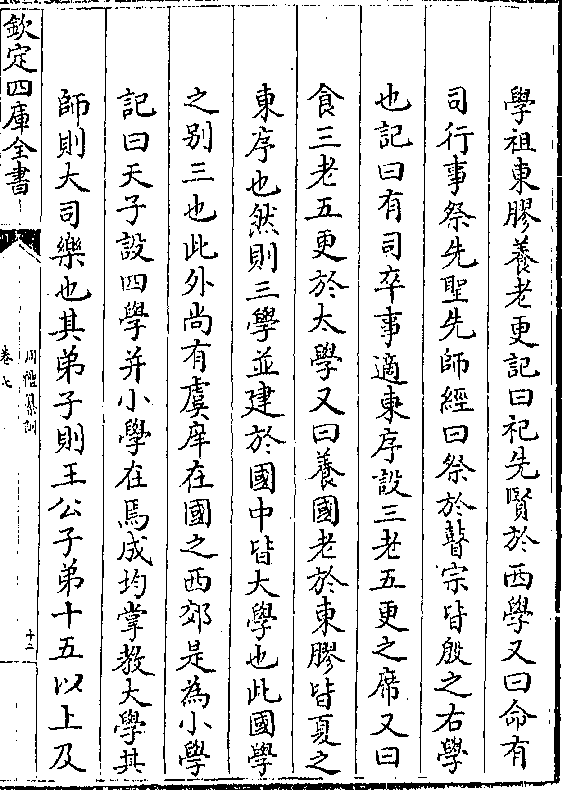 學祖東膠養老更記曰祀先賢於西學又曰命有
司行事祭先聖先師經曰祭於瞽宗皆殷之右學
也記曰有司卒事適東序設三老五更之席又曰
食三老五更於太學又曰養國老於東膠皆夏之
東序也然則三學並建於國中皆大學也此國學
之别三也此外尚有虞庠在國之西郊是為小學
記曰天子設四學并小學在焉成均掌教大學其
師則大司樂也其弟子則王公子弟十五以上及
欽定四庫全書
周禮纂訓
卷七
十二